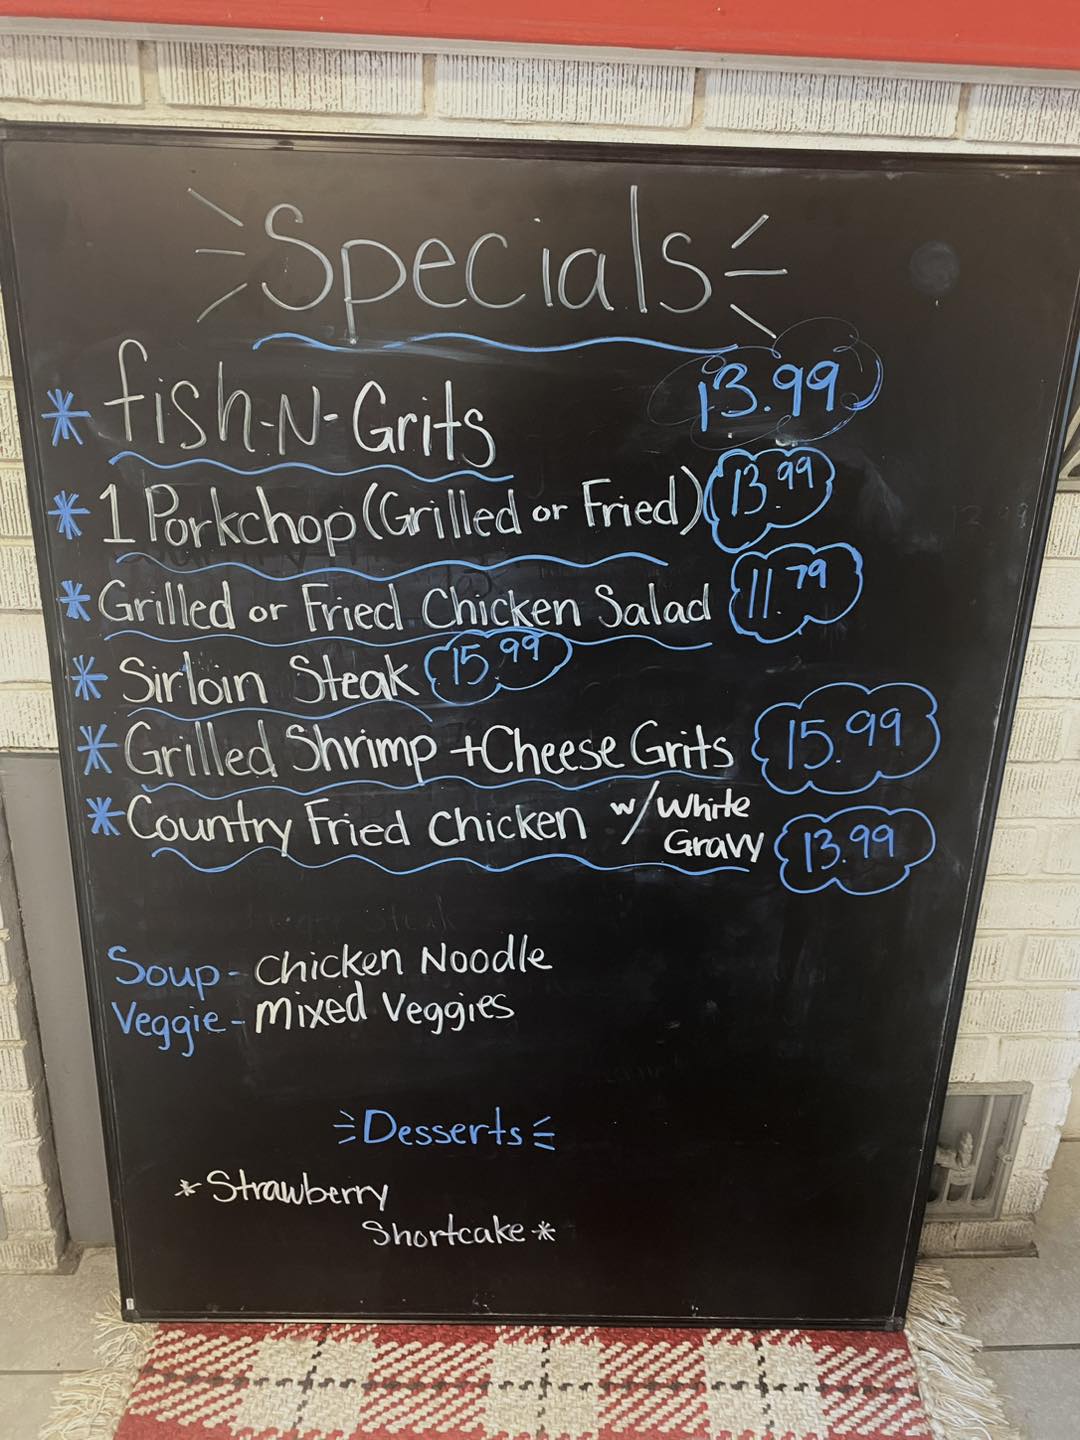 Specials
* fish-N-Grits 13.99
* 1 Porkchop (Grilled or Fried) 13.99
* Grilled or Fried Chicken Salad 11.79
* Sirloin Steak 15.99
* Grilled Shrimp + Cheese Grits 15.99
* Country Fried Chicken w/ White
Gravy 13.99
Soup - Chicken Noodle
Veggie - Mixed Veggies
Desserts
* Strawberry
Shortcake *